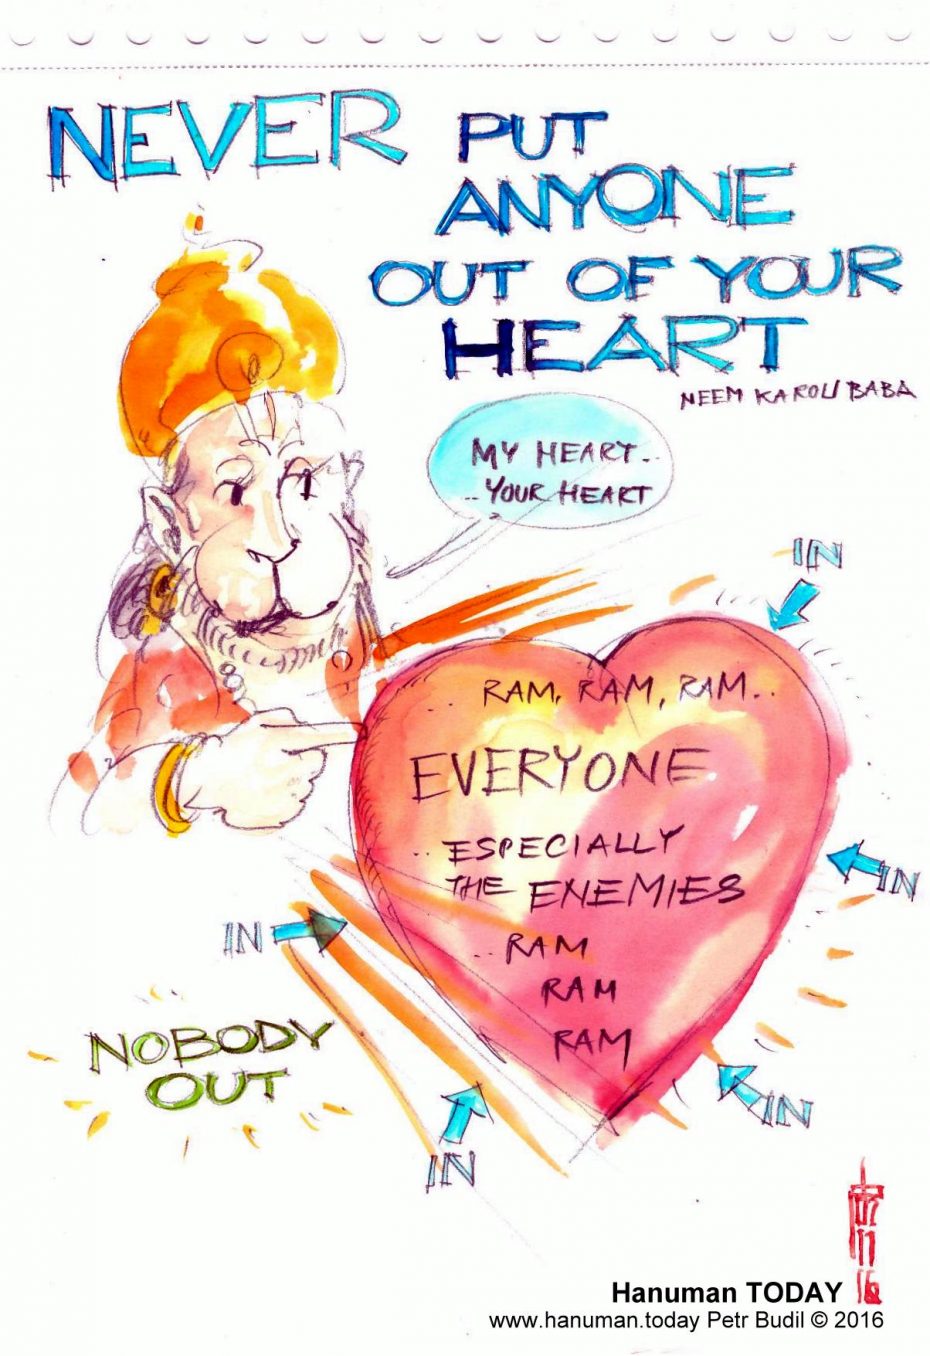 NEVER PUT
ANYONE
OUT OF YOUR
HEART
NEEM KAROLI BABA
MY HEART..
..YOUR HEART
IN
.. RAM, RAM, RAM..
EVERYONE
..ESPECIALLY
THE ENEMIES
..RAM
RAM
RAM
IN
IN
NOBODY
OUT
IN
IN
Hanuman TODAY
www.hanuman.today Petr Budil © 2016